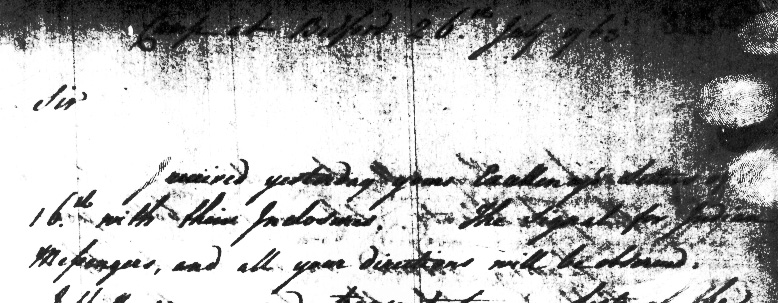 Camp at Bedford 26.th July 1763
Sir
I received yesterday your Excellency's letters of
16.th with their Inclosures. The Signal for Indian
Messengers, and all your directions will be observed.